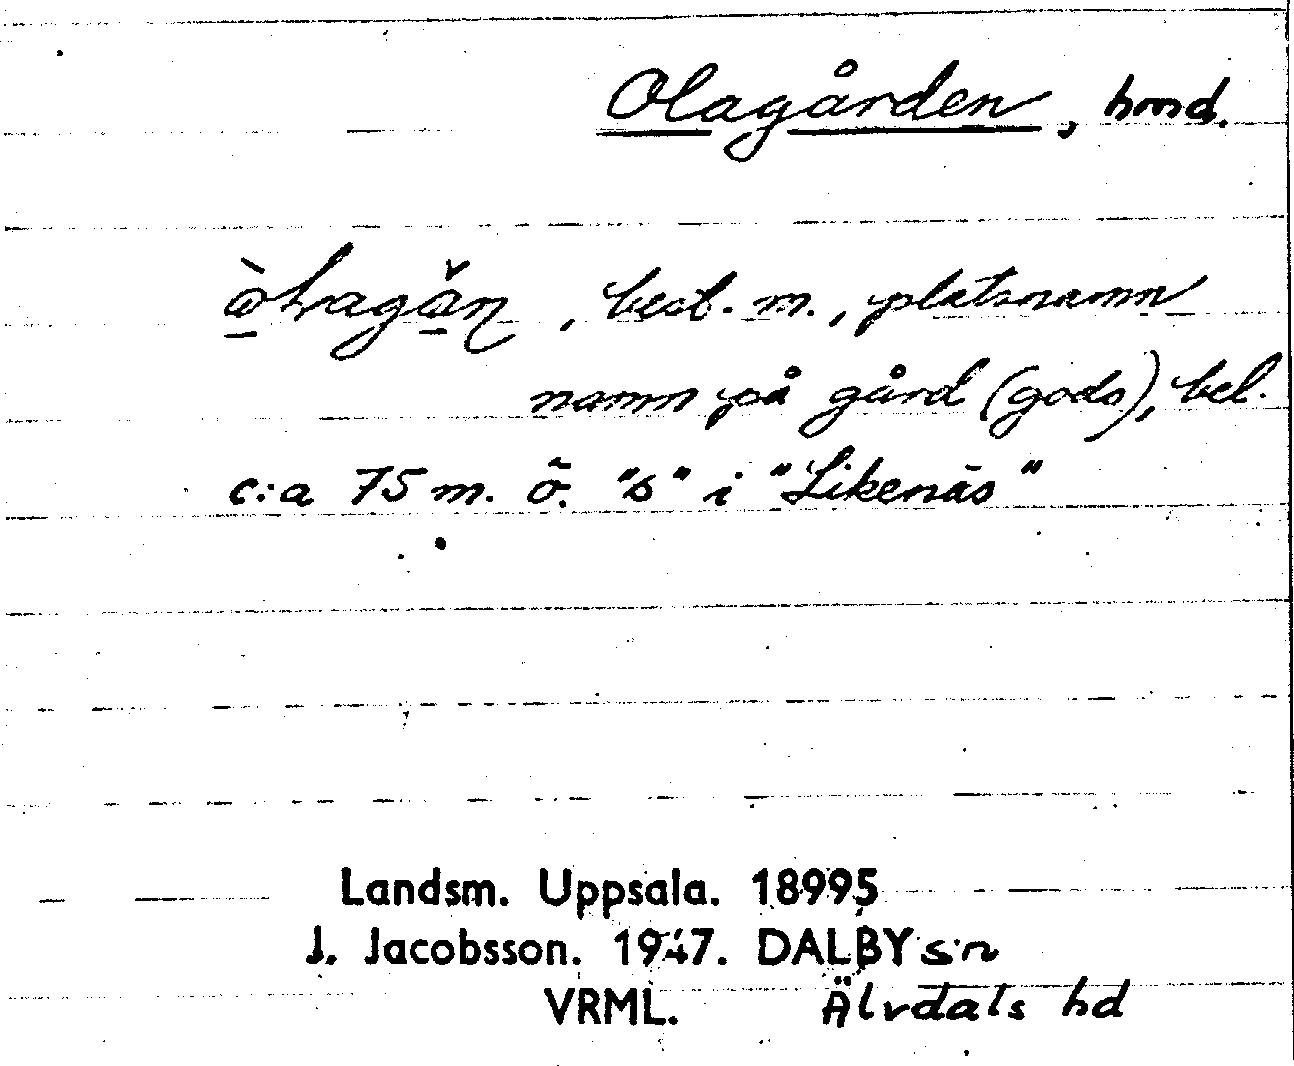 Olagården, hmd.
best. m., platsnamn
namn på gård (gods), bel.
c:a 75 m. ö. "6" i "Likenäs"
Landsm. Uppsala. 18995
J. Jacobsson. 1947. DALBY s:n
VRML. Älvdals hd